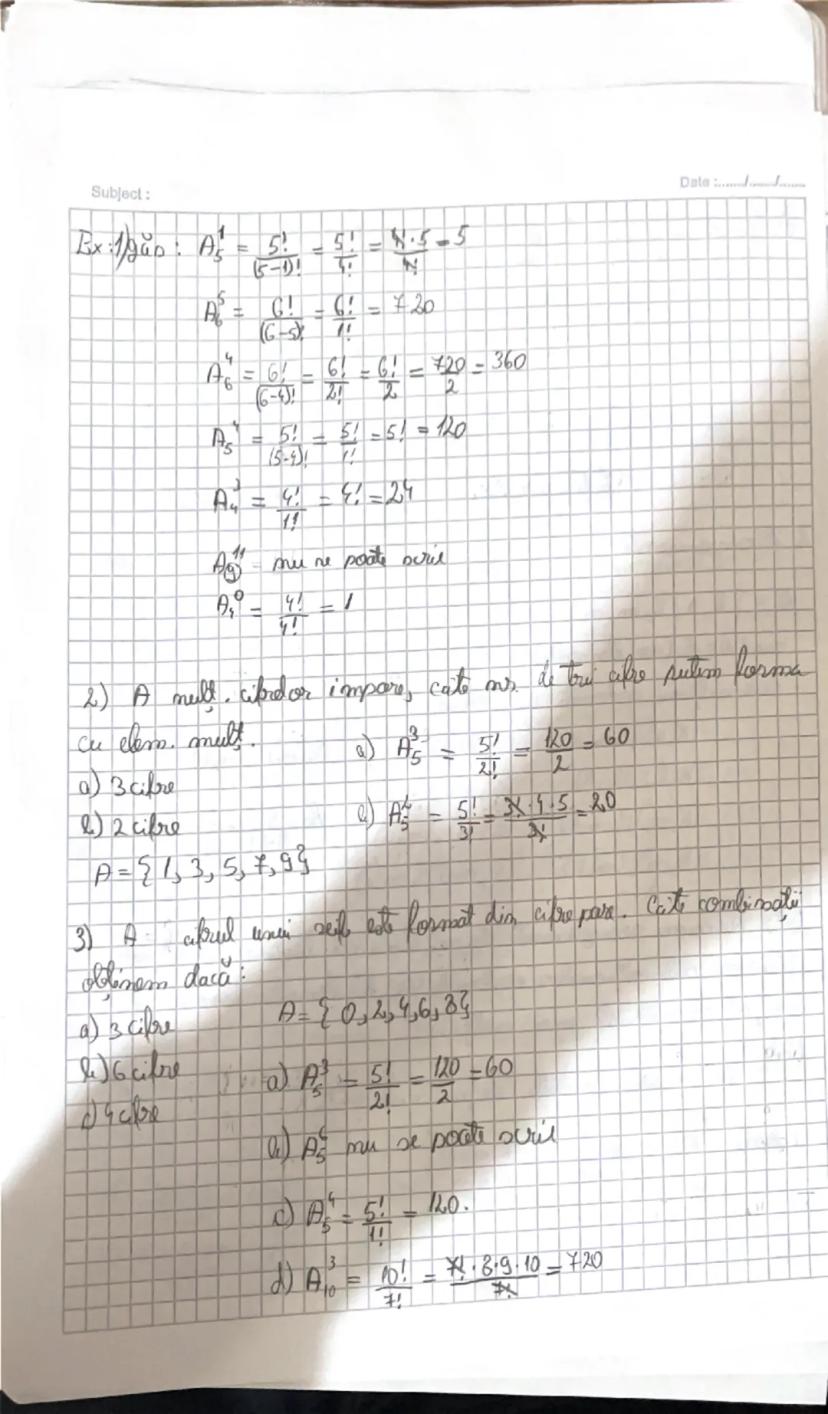 Subject :
Date :....../....../......
Ex:1)găs : A₅¹ = 5!/(5-1)! = 5!/4! = 4!·5/4! = 5
A₆⁵ = 6!/(6-5)! = 6!/1! = 720
A₆⁴ = 6!/(6-4)! = 6!/2! = 6!/2 = 720/2 = 360
A₅⁴ = 5!/(5-4)! = 5!/1! = 5! = 120
A₄³ = 4!/1! = 4! = 24
A₉¹¹ - nu se poate scrie
A₄⁰ = 4!/4! = 1
2) A mulț. cifrelor impare, câte nr. de trei cifre putem forma
cu elem. mulț.
a) A₅³ = 5!/2! = 120/2 = 60
a) 3 cifre
b) 2 cifre
= 5!/3! = 3!·4·5/3! = 20
A = {1, 3, 5, 7, 9}
3) A cifrul unui seif este format din cifre pare. Câte combinații
obținem dacă :
a) 3 cifre
A = {0, 2, 4, 6, 8}
b) 6 cifre
a) A₅³ = 5!/2! = 120/2 = 60
c) 4 cifre
b) A₅⁶ nu se poate scrie
c) A₅⁴ = 5!/1! = 120.
d) A₁₀³ = 10!/7! = 7!·8·9·10/7! = 720